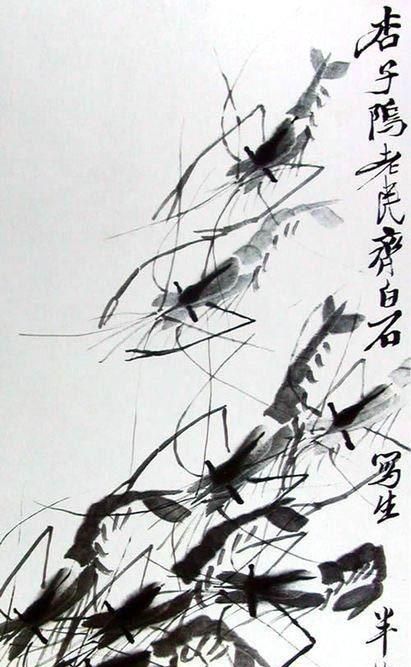 杏子隖老民齊白石 寫生 半